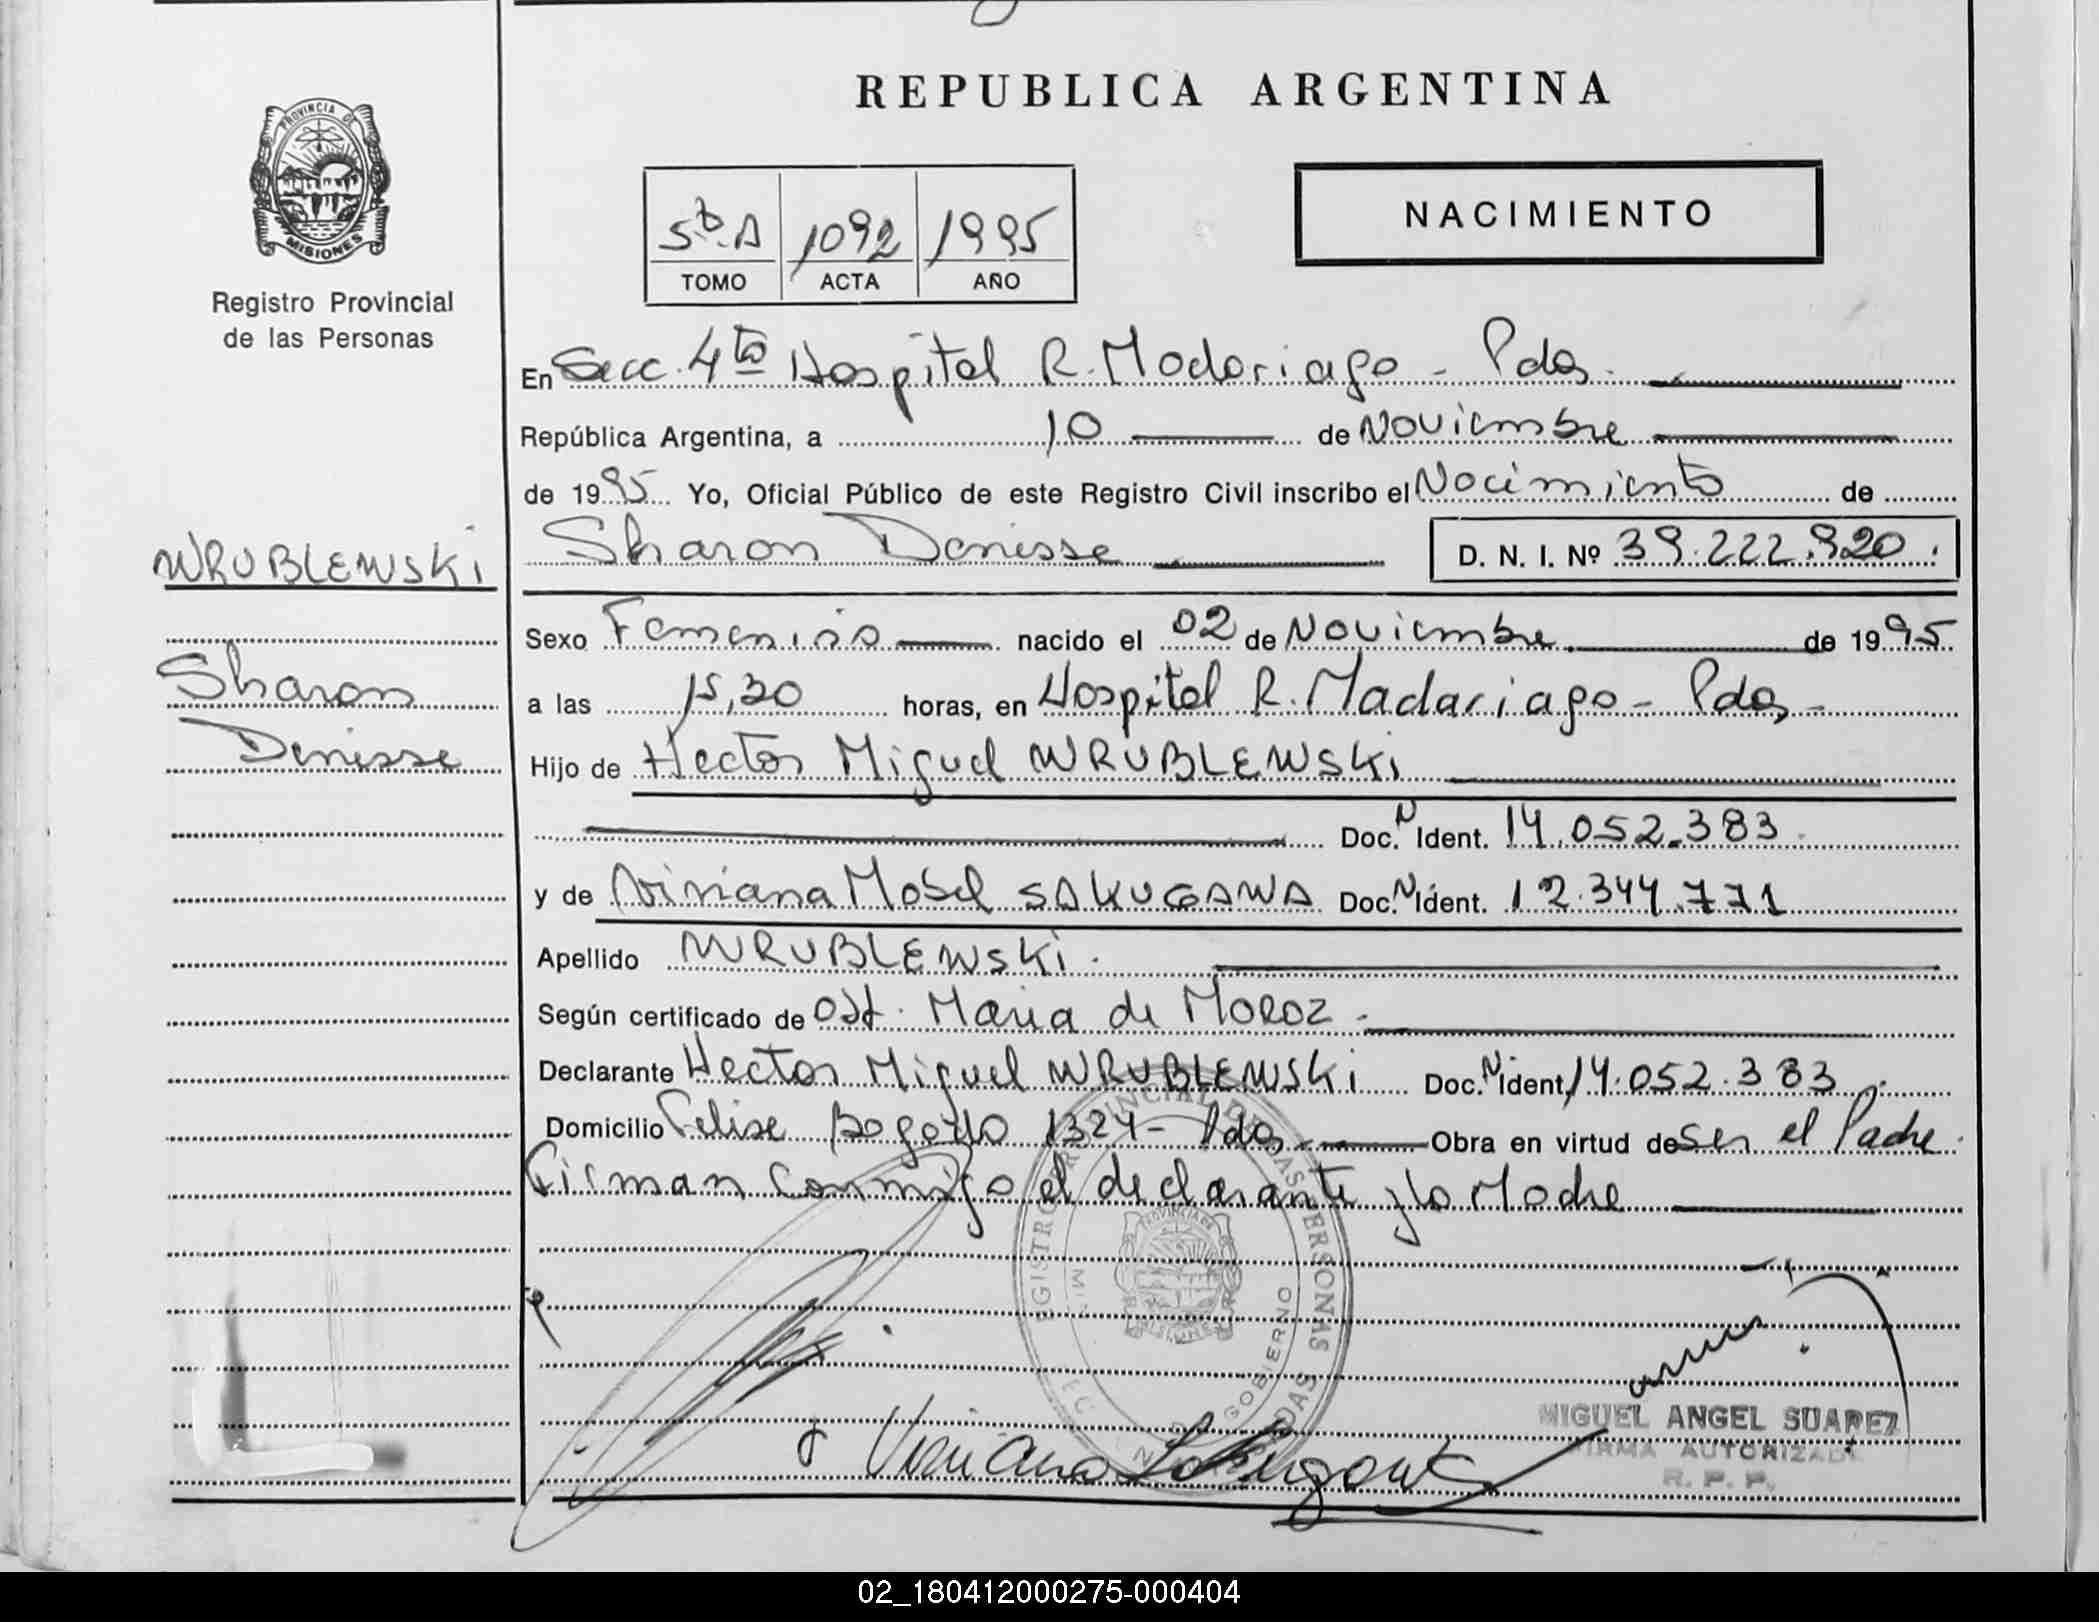 REPUBLICA ARGENTINA
PROVINCIA DE
MISIONES
Registro Provincial
de las Personas
5to. A 1092 1995
TOMO ACTA AÑO
NACIMIENTO
En Secc. 4ta Hospital R. Madariaga - Pdas.
República Argentina, a 10 de Noviembre
de 1995 Yo, Oficial Público de este Registro Civil inscribo el Nacimiento de
Sharon Denisse D. N. I. Nº 39.222.920.
WRUBLEWSKi
Sharon
Denisse
Sexo Femenino nacido el 02 de Noviembre de 1995
a las 15,30 horas, en Hospital R. Madariaga - Pdas -
Hijo de Hector Miguel WRUBLEWSKi
Doc. N Ident. 14.052.383.
y de Viviana Mabel SAKUGAWA Doc. N Ident. 12.344.771
Apellido WRUBLEWSKi.
Según certificado de Obt. Maria de MOROZ -
Declarante Hector Miguel WRUBLEWSKi Doc. N Ident. 14.052.383.
Domicilio 1324 - Pdas. Obra en virtud de ser el Padre.
Firman conmigo el declarante y la Madre
REGISTRO PROVINCIAL DE LAS PERSONAS
GOBIERNO
Viviana
MIGUEL ANGEL SUAREZ
FIRMA AUTORIZADA
R. P. P.
02_180412000275-000404